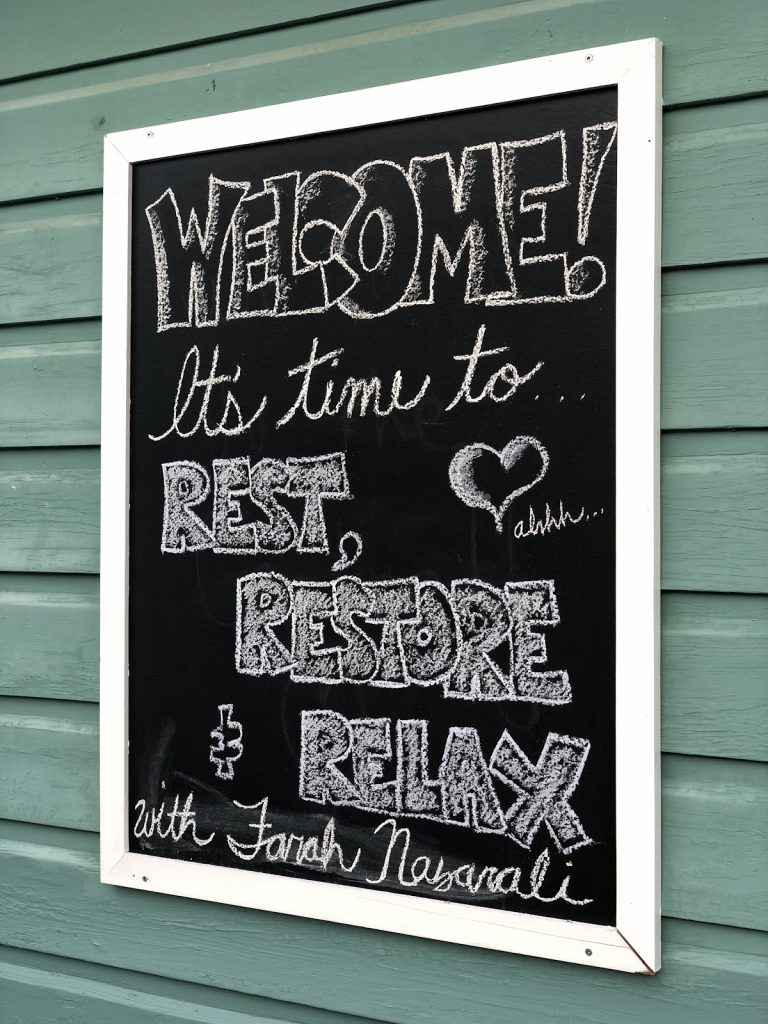 WELCOME!
It's time to...
REST,
ahhh...
RESTORE
& RELAX
with Farah Nasarali